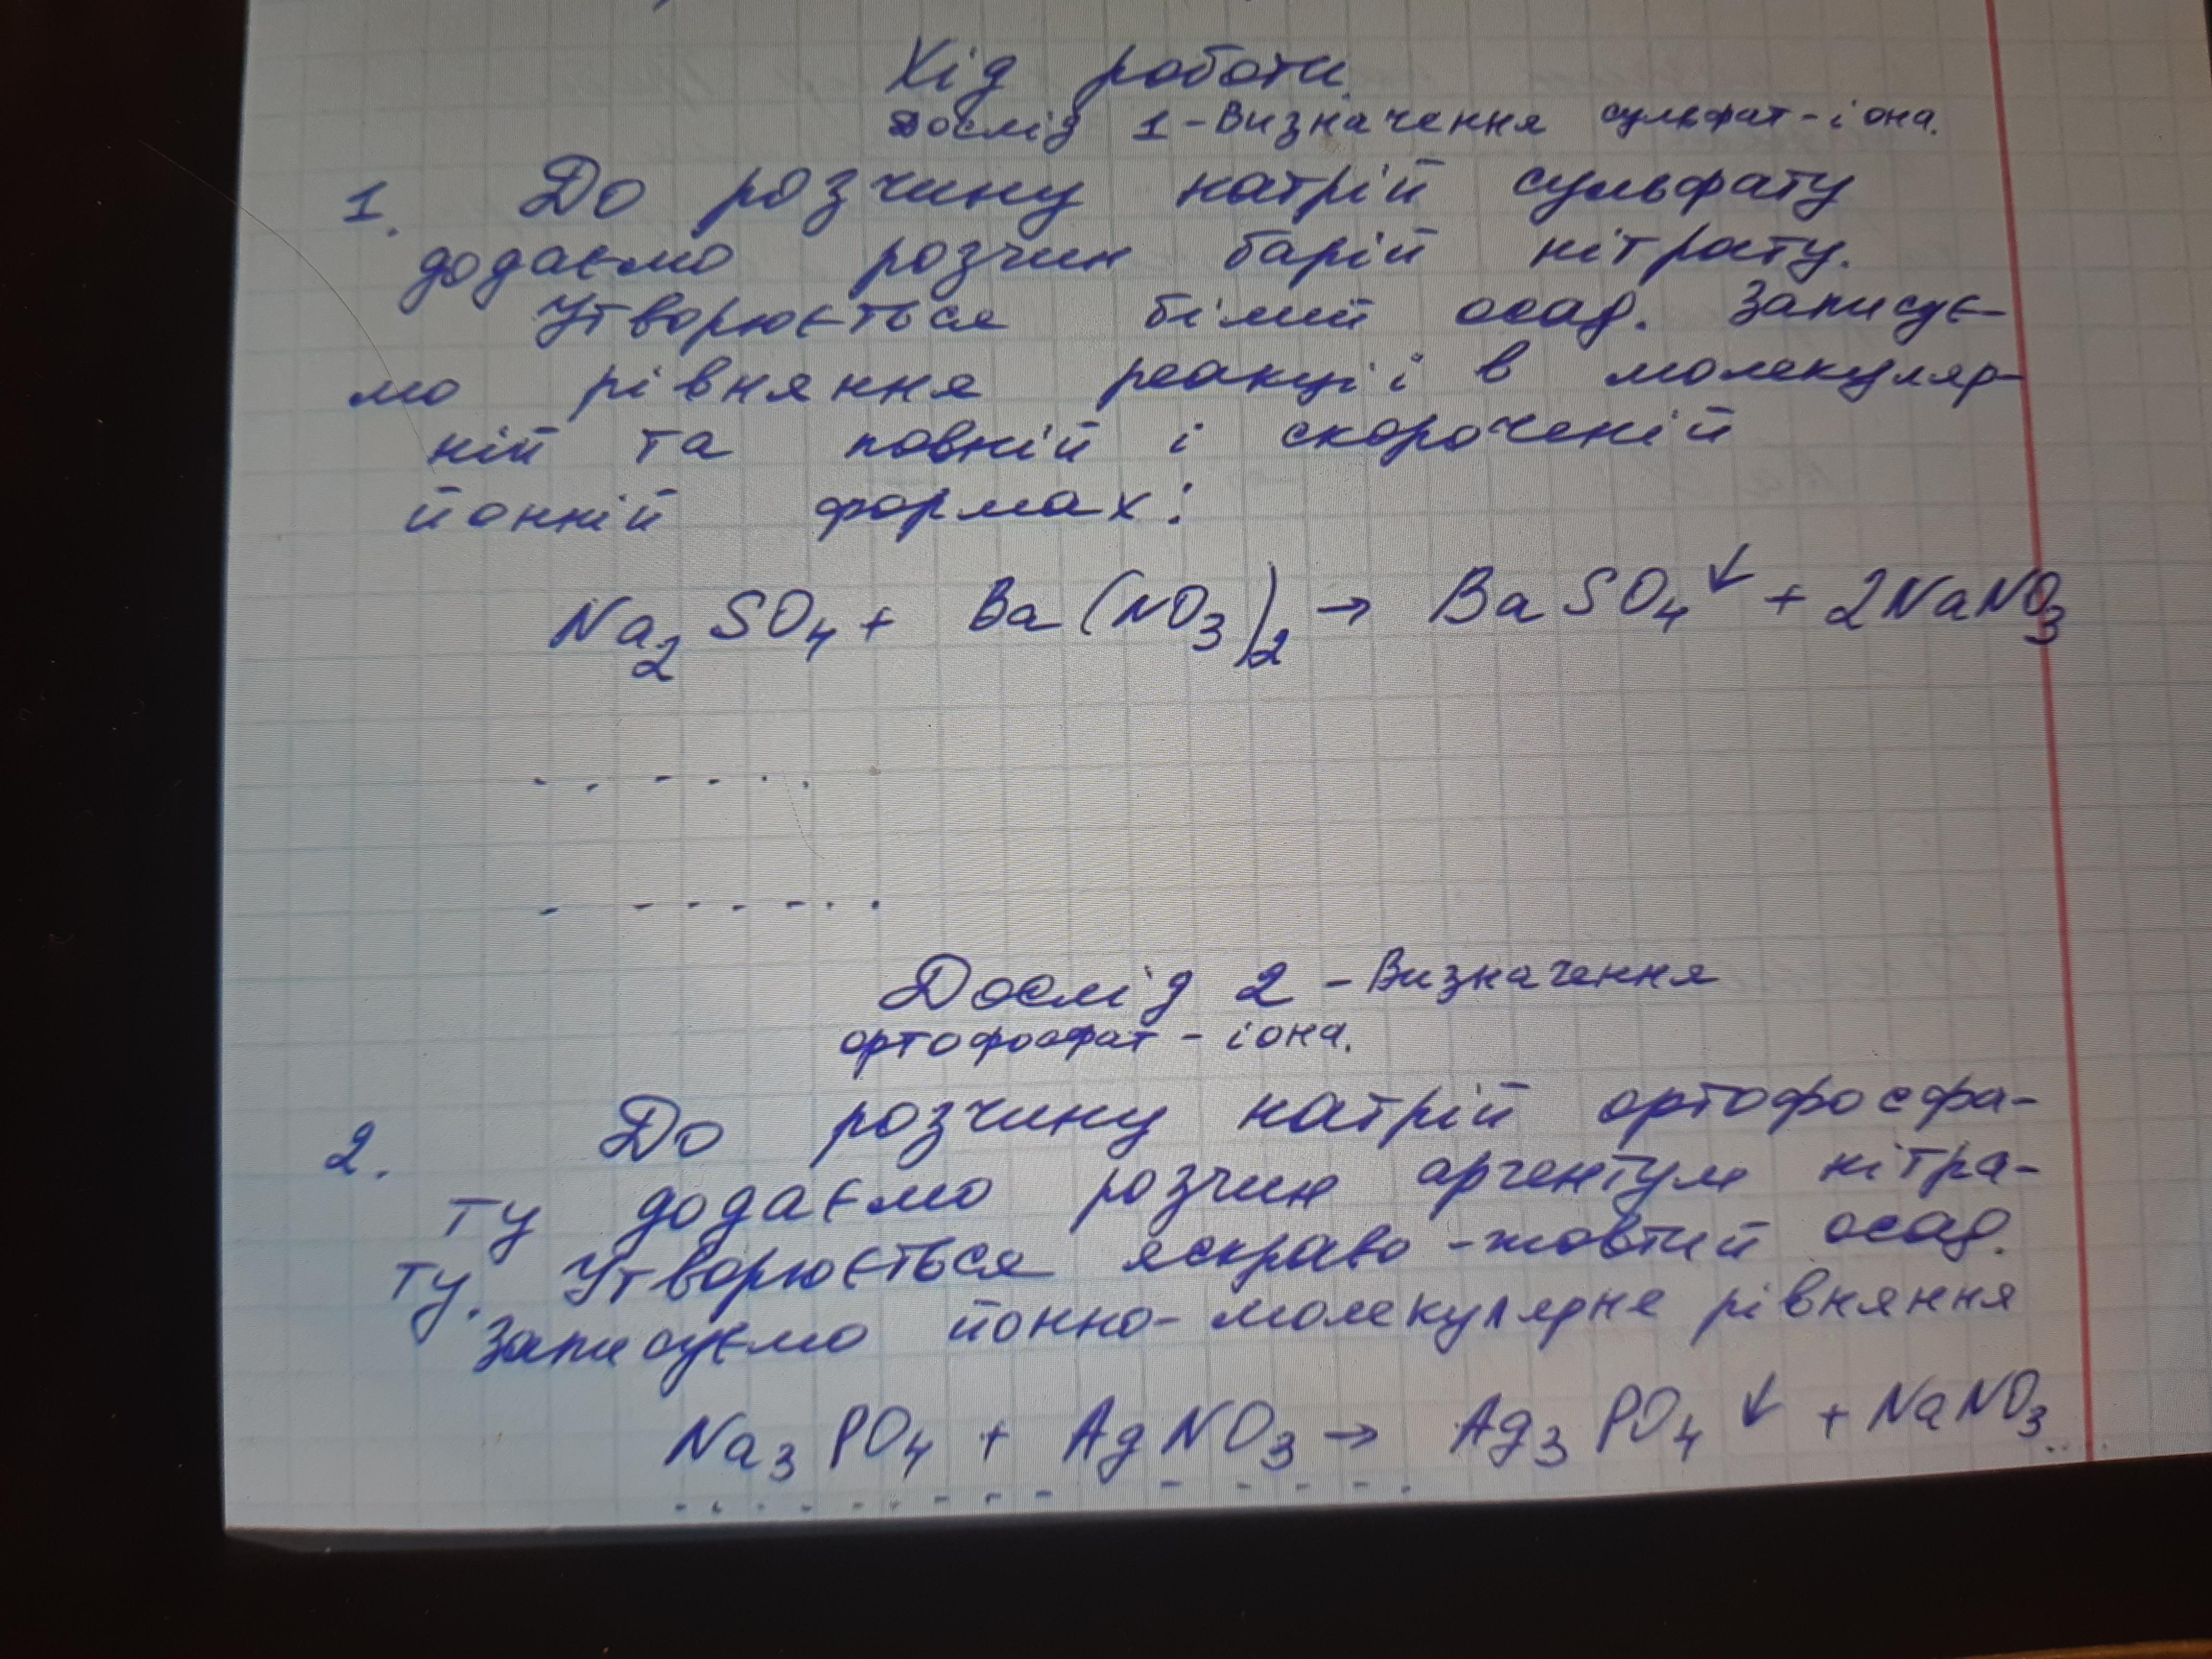 Хід роботи.
Дослід 1 - Визначення сульфат-іона.
1. До розчину натрій сульфату
додаємо розчин барій нітрату.
Утворюється білий осад. Записує-
мо рівняння реакції в молекуляр-
ній та повній і скороченій
йонній формах:
Na₂SO₄ + Ba(NO₃)₂ → BaSO₄↓ + 2NaNO₃
.......
.......
Дослід 2 - Визначення
ортофосфат - іона.
2. До розчину натрій ортофосфа-
ту додаємо розчин аргентум нітра-
ту. Утворюється яскраво-жовтий осад.
Записуємо йонно-молекулярне рівняння
Na₃PO₄ + AgNO₃ → Ag₃PO₄↓ + NaNO₃....
..............